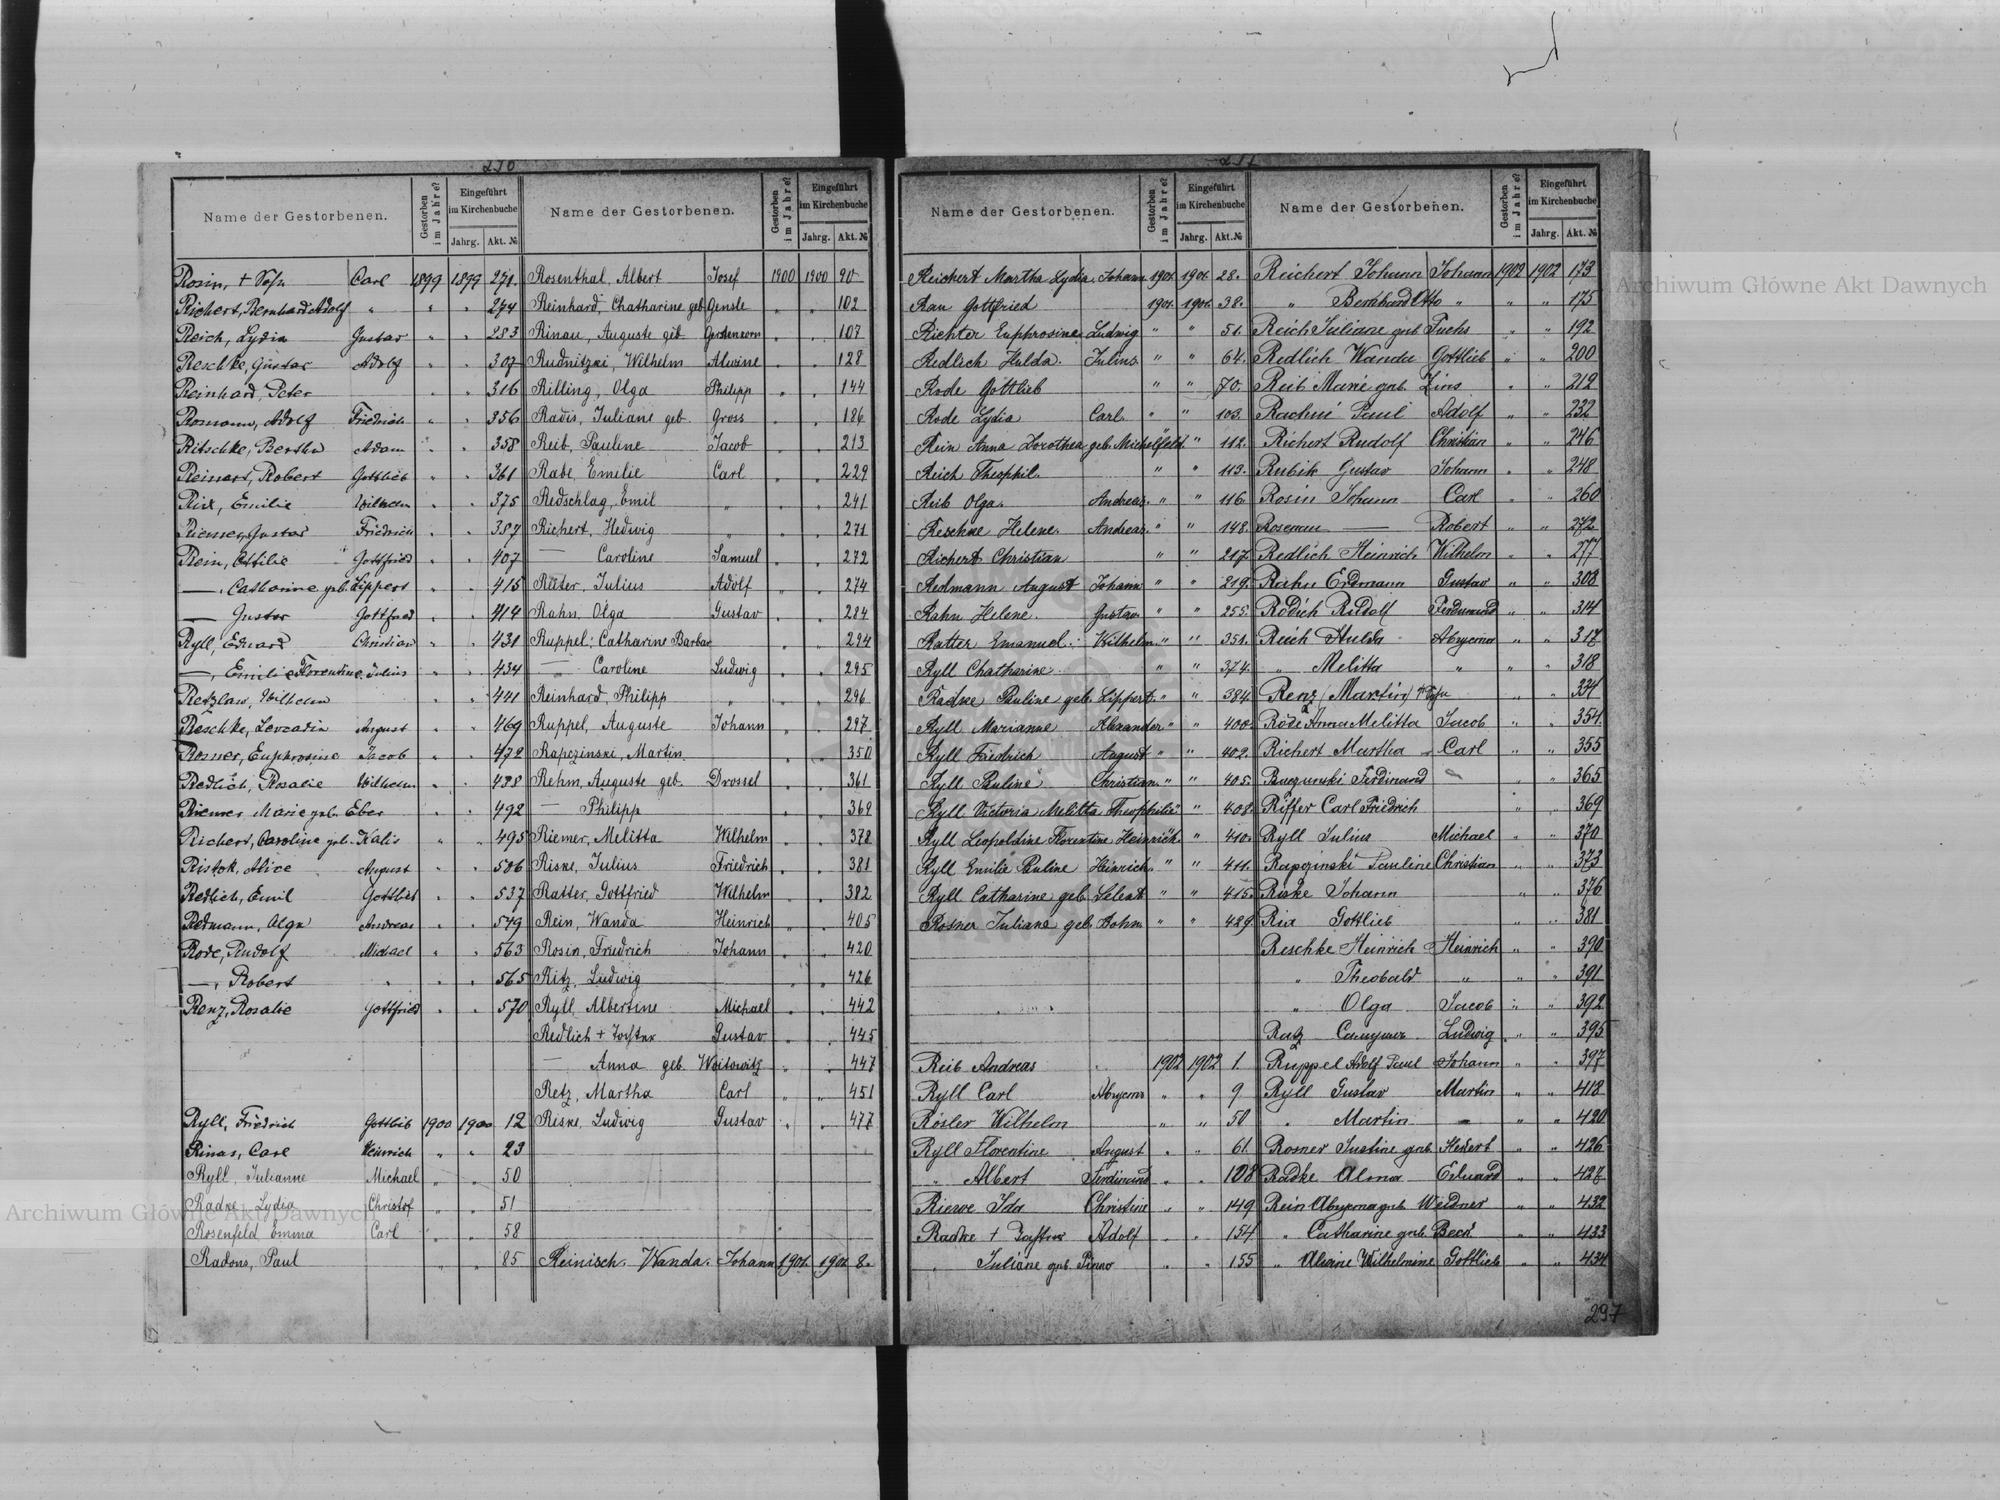 230
Name der Gestorbenen.
Gestorben im Jahre?
Eingeführt im Kirchenbuche
Jahrg. Akt. №
Rosin, + Sohn Carl 1899 1899 271.
Richert, Bernhard Adolf " " " 274
Reich, Lydia Gustav " " 283
Reschke, Gustav Adolf " " 307
Reinhard, Peter " " 316
Romann, Adolf Friedrich " " 356
Ritschke, Bertha Adam " " 358
Reinert, Robert Gottlieb " " 361
Rix, Emilie Wilhelm " " 375
Riemer, Gustav Friedrich " " 387
Rein, Ottilie Gottfried " " 407
—, Catharine geb. Lippert " " 415
— Gustav Gottfried " " 414
Ryll, Eduard Christian " " 431
—, Emilie Florentine Julius " " 434
Retzlaw, Wilhelm " " 441
Reschke, Leocadia August " " 469
Rosner, Euphrosine Jacob " " 472
Redlich, Rosalie Wilhelm " " 488
Riemer, Marie geb. Eber " " 492
Richert, Caroline geb. Kalis " " 495
Ristok, Alice August " " 506
Redlich, Emil Gottlieb " " 537
Redmann, Olga Andreas " " 549
Rode, Rudolf Michael " " 563
—, Robert " " " 565
Renz, Rosalie Gottfried " " 570
Ryll, Friedrich Gottlieb 1900 1900 12
Rinas, Carl Heinrich " " 23
Ryll, Julianne Michael " " 50
Radke Lydia Christof " " 51
Rosenfeld Emma Carl " " 58
Radons, Paul " " 85
Name der Gestorbenen.
Gestorben im Jahre?
Eingeführt im Kirchenbuche
Jahrg. Akt. №
Rosenthal, Albert Josef 1900 1900 90
Reinhard, Chatharine geb. Gensle " " 102
Rinau, Auguste geb. Gerstenkorn " " 107
Rudnitzki, Wilhelm Alwine " " 128
Rilling, Olga Philipp " " 144
Radis, Juliane geb. Gross " " 186
Reib, Pauline Jacob " " 213
Rabe, Emelie Carl " " 229
Redschlag, Emil " " " 241
Richert, Hedwig " " " 271
— Caroline Samuel " " 272
Räter, Julius Adolf " " 274
Rahn, Olga Gustav " " 284
Ruppel, Catharine Barbar " " 294
— Caroline Ludwig " " 295
Reinhard, Philipp " " " 296
Ruppel, Auguste Johann " " 297
Rapczinski, Martin " " 350
Rehm, Auguste geb. Drossel " " 361
— Philipp " " 369
Riemer, Melitta Wilhelm " " 378
Riske, Julius Friedrich " " 381
Ratter, Gottfried Wilhelm " " 382
Rein, Wanda Heinrich " " 405
Rosin, Friedrich Johann " " 420
Ritz, Ludwig " " 426
Ryll, Albertine Michael " " 442
Redlich + Tochter Gustav " " 445
— Anna geb. Woitowitz " " 447
Retz, Martha Carl " " 451
Riske, Ludwig Gustav " " 477
Reinisch. Wanda. Johann 1901. 1901. 8.
231
Name der Gestorbenen.
Gestorben im Jahre?
Eingeführt im Kirchenbuche
Jahrg. Akt. №
Reichert Martha Lydia. Johann 1901. 1901. 28.
Rau Gottfried 1901. 1901. 38.
Richter Euphrosine Ludwig " " 51.
Redlich Hulda. Julius " " 64.
Rode Gottlieb " " 70.
Rode Lydia Carl. " " 103.
Rein Anna Dorothea geb. Michelfeld. " " 112.
Reich Theophil. " " 113.
Reib Olga. Andreas. " " 116.
Reschke Helene. Andreas. " " 148.
Richert Christian " " 217.
Redmann August Johann " " 219.
Rahn Helene. Gustav " " 255.
Ratter Emanuel. Wilhelm " " 351.
Ryll Chatharine. " " 374.
Radke Pauline geb. Lippert. " " 384.
Ryll Marianne Alexander " " 400.
Ryll Friedrich August " " 402.
Ryll Pauline Christian " " 405.
Ryll Victoria Melitta Theophilie " 408.
Ryll Leopoldine Florentine Heinrich. " 410.
Ryll Emilie Pauline Heinrich. " " 411.
Ryll Catharine geb. Selent " " 415.
Rosner Juliane geb. Bohm " " 429.
Reib Andreas 1902 1902 1.
Ryll Carl " " 9
Rösler Wilhelm " " 50
Ryll Florentine August " " 61.
" Albert Ferdinand " " 108
Riewe Ida Christine " " 149
Radke + Tochter Adolf " " 154
" Juliane geb. Pinno " " 155
Name der Gestorbenen.
Gestorben im Jahre?
Eingeführt im Kirchenbuche
Jahrg. Akt. №
Reichert Johann Johann 1902 1902 173
" Bernhard Otto " " " 175
Reich Juliane geb. Fuchs " " 192
Redlich Wanda Gottlieb " " 200
Reib Marie geb. Zins " " 212
Rachui Paul Adolf " " 232
Richert Rudolf Christian " " 246
Rubik Gustav Johann " " 248
Rosin Johann Carl " " 260
Rosenau — Robert " " 272
Redlich Heinrich Wilhelm " " 277
Rahn Erdmann Gustav " " 308
Rodich Rudolf Ferdinand " " 314
Reich Hulda " " 317
" Melitta " " " 318
Renz (Martin) " " 334
Rode Anna Melitta Jacob " " 354.
Richert Martha Carl " " 355
Ferdinand " " 365
Riffer Carl Friedrich " " 369
Ryll Julius Michael " " 370
Rapzinski Pauline Christian " " 373
Riske Johann " " 376
Ria Gottlieb " " 381
Reschke Heinrich Heinrich " " 390
" Theobald " " " 391
" Olga Jacob " " 392
Ratz Ludwig " " 395
Ruppel Adolf Paul Johann " " 397
Ryll Gustav Martin " " 418
" Martin " " " 420
Rosner Justine geb. Heisert " " 426
Radke Alma Eduard " " 427
Rein geb. Weidner " " 432
" Catharine geb. Beck " " 433
" Alwine Wilhelmine Gottlieb " " 434
297
Archiwum Główne Akt Dawnych
Archiwum Główne Akt Dawnych